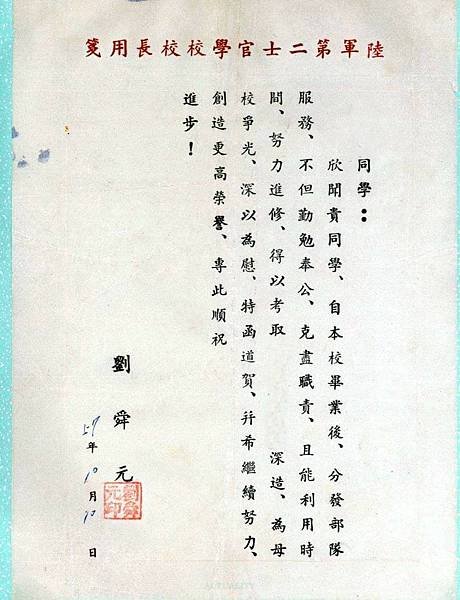 陸軍第二士官學校校長用箋
同學：
欣聞貴同學、自本校畢業後、分發部隊
服務、不但勤勉奉公、克盡職責、且能利用時
間、努力進修、得以考取　深造、為母
校爭光、深以為慰、特函道賀、并希繼續努力、
創造更高榮譽、專此順祝
進步！
劉舜元
劉舜元印
年10月　日